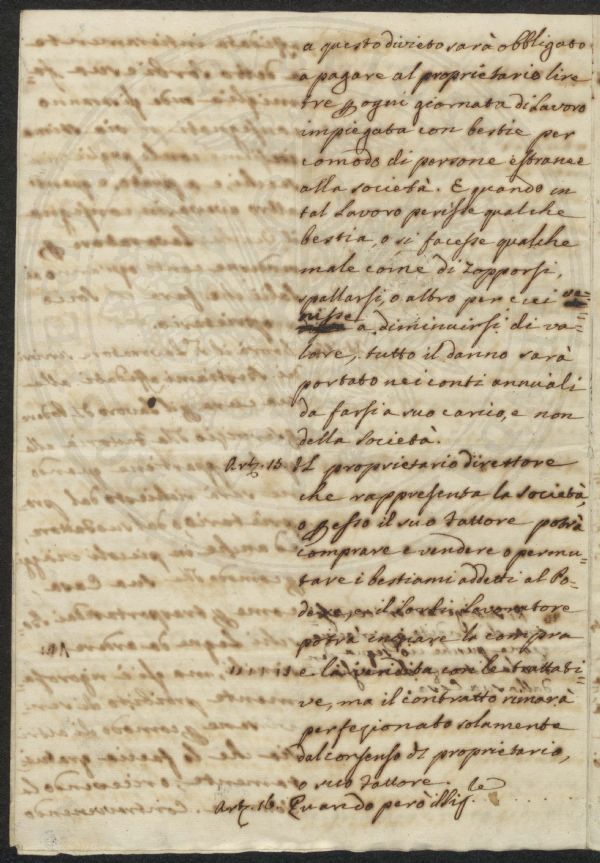 a questo divieto sarà obbligato
a pagare al proprietario lire
tre p ogni giornata di Lavoro
impiegata con bestie per
comodo di persone estranee
alla società. E quando in
tal Lavoro perisse qualche
bestia, o si facesse qualche
male come di Zopporsi,
spallarsi, o altro per cui ve-
nisse a diminuirsi di va-
lore, tutto il danno sarà
portato nei conti annuali
da farsi a suo carico, e non
della società.
Art. 15. Il proprietario direttore
che rappresenta la società,
o p esso il suo Fattore potrà
comprare e vendere o permu-
tare i bestiami addetti al Po-
dere, e il Lavoratore
potrà iniziare la compra
e la vendita con le trattati-
ve, ma il contratto rimarà
perfezionato solamente
dal consenso dl proprietario,
o suo Fattore.
Art. 16. Quando però